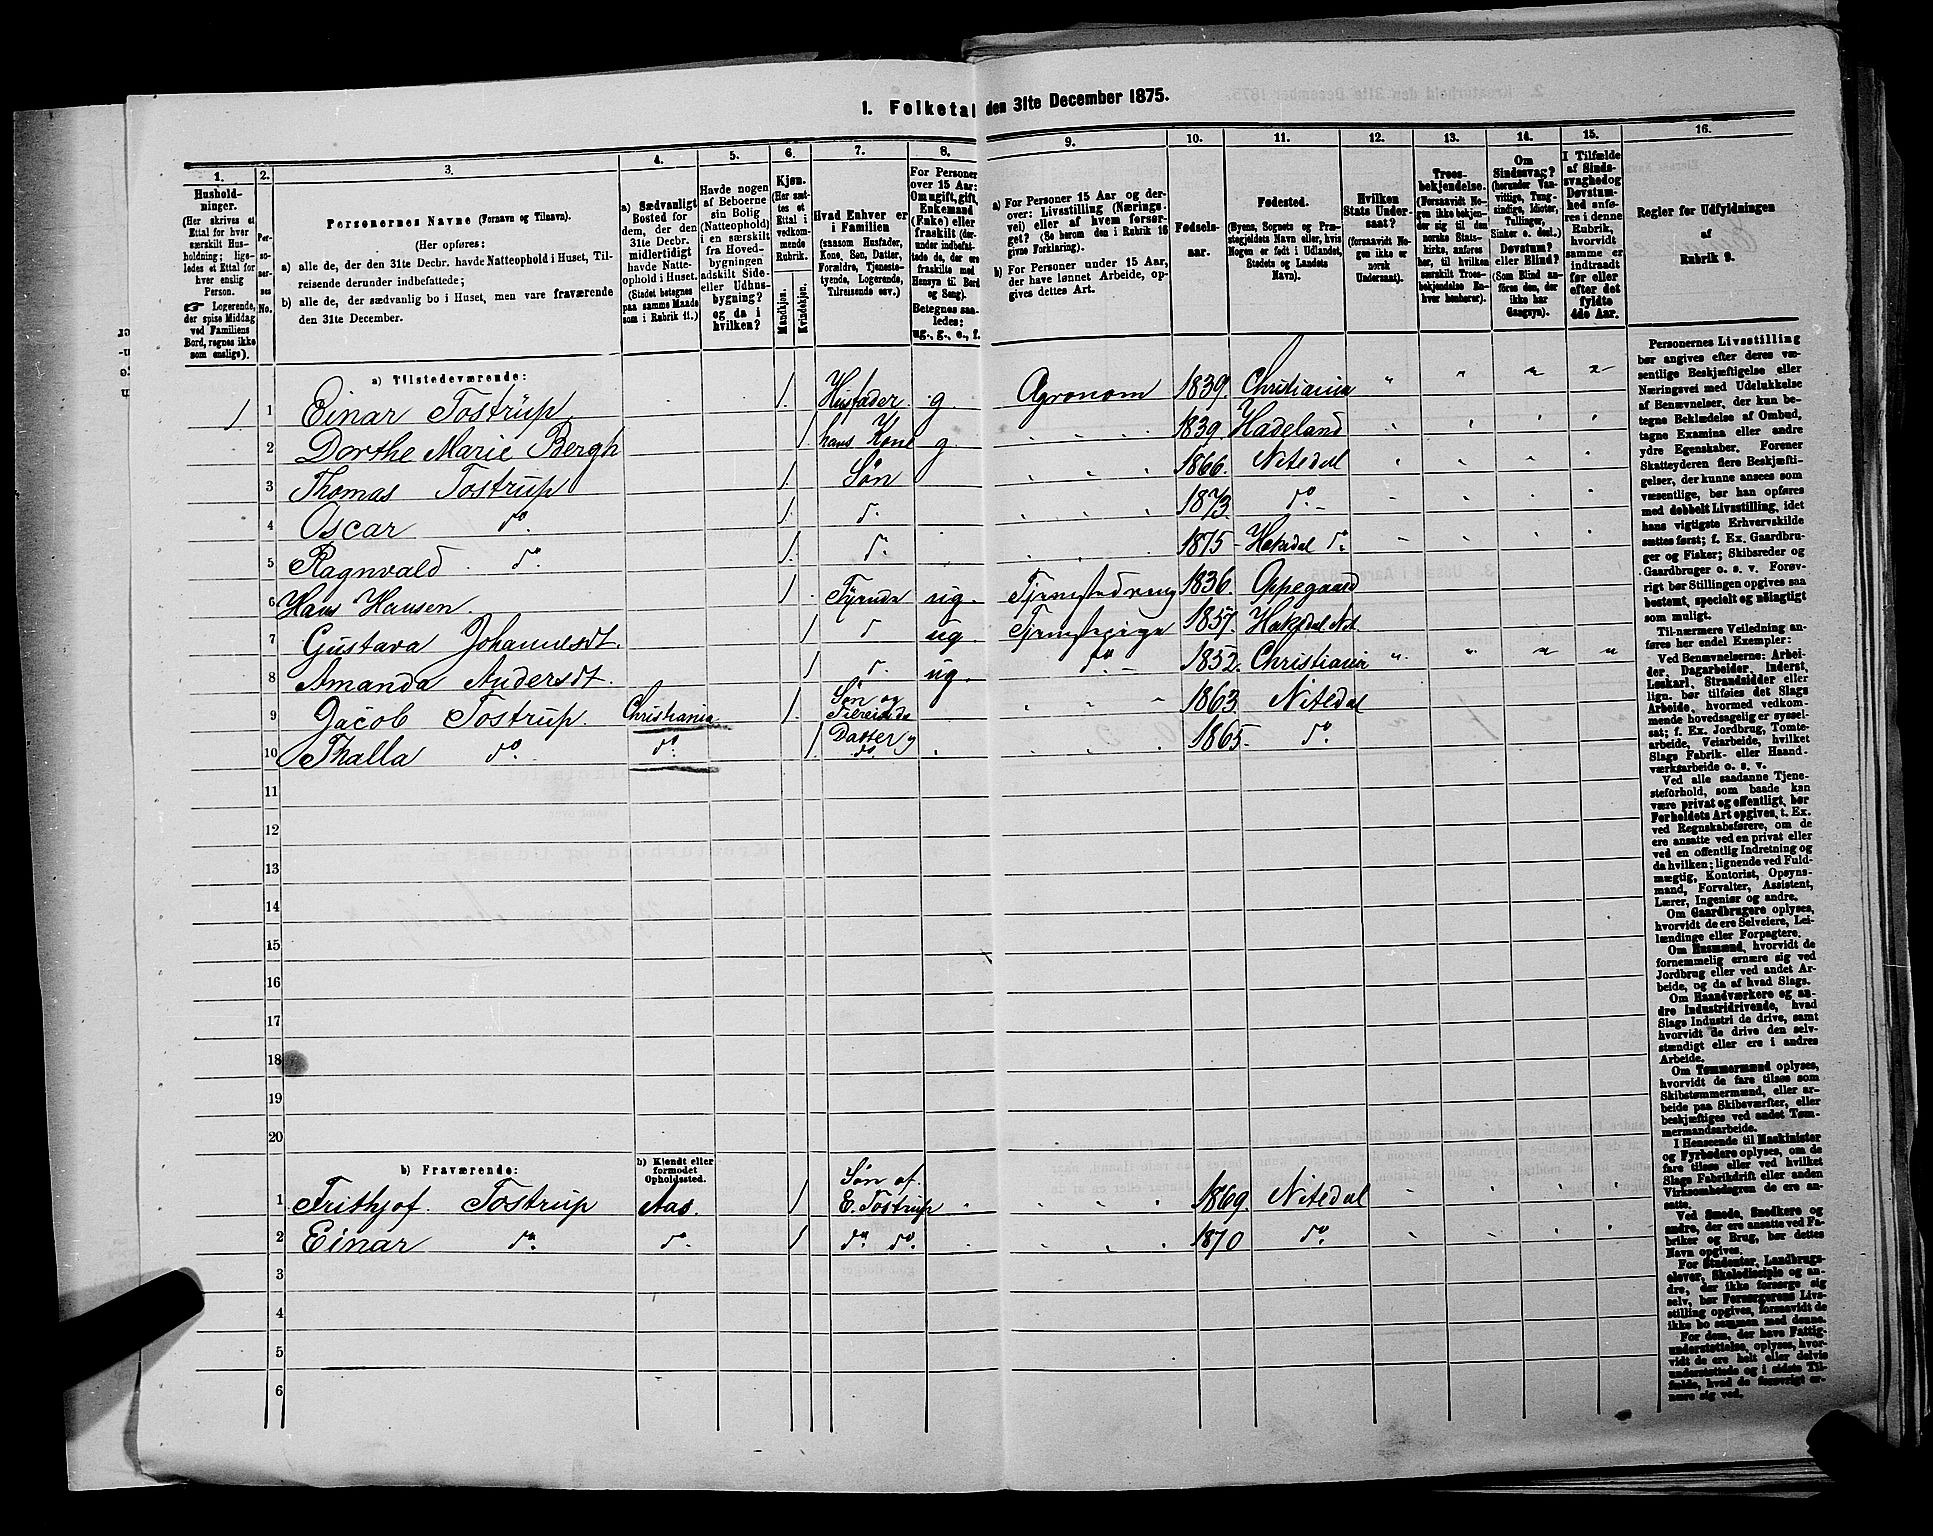 1. Folketal den 31te December 1875.
1. 2. 3. 4. 5. 6. 7. 8. 9. 10. 11. 12. 13. 14. 15. 16.
Hushold-
ninger.
(Her skrives et
Ettal for hver
særskilt Hus-
holdning; lige-
ledes et Ettal for
hver enslig
Person.
☞ Logerende,
der spise Middag
ved Familiens
Bord, regnes ikke
som enslige).
Per-
so-
ner-
nes
No.
Personernes Navne (Fornavn og Tilnavn).
(Her opføres:
a) alle de, der den 31te Decbr. havde Natteophold i Huset, Til-
reisende derunder indbefattede;
b) alle de, der sædvanlig bo i Huset, men vare fraværende
den 31te December.
a) Sædvanligt
Bosted for
dem, der den
31te Decbr.
midlertidigt
havde Natte-
ophold i Huset.
(Stedet betegnes
paa samme Maade
som i Rubrik 11.)
Havde nogen
af Beboerne
sin Bolig
(Natteophold)
i en særskilt
fra Hoved-
bygningen
adskilt Side-
eller Udhus-
bygning?
og da i
hvilken?
Kjøn.
(Her sæt-
tes et
Ettal i
vedkom-
mende
Rubrik.
Mandkjøn.
Kvindekjøn.
Hvad Enhver er
i Familien
(saasom Husfader,
Kone, Søn, Datter,
Forældre, Tjeneste-
tyende, Logerende,
Tilreisende osv.)
For Personer
over 15 Aar:
Om ugift, gift,
Enkemand
(Enke) eller
fraskilt (der-
under indbefat-
tede de, der ere
fraskilte med
Hensyn til Bord
og Seng).
Betegnes saa-
ledes:
ug., g., e., f.
a) For Personer 15 Aar og der-
over: Livsstilling (Nærings-
vei) eller af hvem forsør-
get? (Se herom den i Rubrik 16
givne Forklaring).
b) For Personer under 15 Aar,
der have lønnet Arbeide, op-
gives dettes Art.
Fødsels-
aar.
Fødested.
(Byens, Sognets og Præ-
stegjeldets Navn eller, hvis
Nogen er født i Udlandet,
Stedets og Landets
Navn).
Hvilken
Stats Under-
saat?
(forsaavidt No-
gen ikke er
norsk
Undersaat).
Troes-
bekjendelse.
(Forsaavidt No-
gen ikke bekjen-
der sig til den
norske Stats-
kirke, anføres
her, til hvilken
særskilt Troes-
bekjendelse En-
hver henhører).
Om
Sindssvag?
(herunder Van-
vittige, Tung-
sindige, Idioter,
Tullinger,
Sinker o. desl.).
Døvstum?
eller Blind?
(Som Blind an-
føres den, der
ikke har
Gangsyn).
I Tilfælde
af Sinds-
svaghed og
Døvstum-
hed anfø-
res i denne
Rubrik,
hvorvidt
samme er
indtraadt
før eller
efter det
fyldte
4de Aar.
Regler for Udfyldningen
af
Rubrik 9.
a) Tilstedeværende:
1 1 Einar Tostrup 1. Husfader g. Agronom 1839. Christiania " " " "
2 Dorthe Marie Bergh 1 hans Kone g. 1839. Hadeland
3 Thomas Tostrup 1. Søn 1866. Nitedal
4 Oscar do. 1. d. 1873. do.
5 Ragnvald do. 1. d. 1875 Hakedal do.
6 Hans Hansen. 1. Tyende ug. Tjenestedreng 1836. Oppegaard
7 Gustava Johannesdt. 1 d ug. Tjenestepige 1857. Hakedal Nit.
8 Amanda Andersdt. 1. d. ug. do 1852. Christiania " " " "
9 Jacob Tostrup. Christiania 1. Søn og Tilreisende 1863. Nitedal
10 Thalla do. do. 1. Datter og do. 1865. do.
11
12
13
14
15
16
17
18
19
20
b) Fraværende:
b) Kjendt eller
formodet
Opholdssted.
1 Frithjof. Tostrup Aas. 1 Søn af E. Tostrup 1869. Nitedal
2 Einar do. do. 1 do. do. 1870 do.
3
4
5
6
Personernes Livsstilling
bør angives efter deres væ-
sentlige Beskjæftigelse eller
Næringsvei med Udelukkelse
af Benævnelser, der kun be-
tegne Beklædelse af Ombud,
tagne Examina eller andre
ydre Egenskaber. Forener
Skatteyderen flere Beskjæfti-
gelser, der kunne ansees som
væsentlige, bør han opføres
med dobbelt Livsstilling, idet
hans vigtigste Erhvervskilde
sættes først; f. Ex. Gaardbru-
ger og Fisker; Skibsreder og
Gaardbruger o. s. v. Forøv-
rigt bør Stillingen opgives saa
bestemt, specielt og nøiagtigt
som muligt.
Til nærmere Veiledning an-
føres her endel Exempler:
Ved Benævnelserne: Arbei-
der, Dagarbeider, Inderst,
Løskarl, Strandsidder eller
lign. bør tilføies det Slags
Arbeide, hvormed vedkom-
mende hovedsagelig er syssel-
sat; f. Ex. Jordbrug, Tomte-
arbeide, Veiarbeide, hvilket
Slags Fabrik- eller Haand-
værksarbeide o. s. v.
Ved alle saadanne Tjene-
steforhold, som baade kan
være privat og offentligt, bør
Forholdets Art opgives, t. Ex.
ved Regnskabsførere, om de
ere ansatte ved en privat eller
ved en offentlig Indretning og
da hvilken; lignende ved Fuld-
mægtig, Kontorist, Opsyns-
mand, Forvalter, Assistent,
Lærer, Ingeniør og andre.
Om Gaardbrugere oplyses,
hvorvidt de ere Selveiere, Lei-
lændinge eller Forpagtere.
Om Husmænd, hvorvidt de
fornemmelig ernære sig ved
Jordbrug eller ved andet Ar-
beide, og da af hvad Slags.
Om Haandværkere og an-
dre Industridrivende, hvad
Slags Industri de drive, samt
hvorvidt de drive den selv-
stændigt eller ere i andres
Arbeide.
Om Tømmermænd oplyses,
hvorvidt de fare tilsøs som
Skibstømmermænd, eller ar-
beide paa Skibsværfter, eller
beskjæftiges ved andet Tøm-
mermandsarbeide.
I Henseende til Maskinister
og Fyrbødere oplyses, om de
fare tilsøs eller ved hvilket
Slags Fabrikdrift eller anden
Virksomhed de ere an-
satte.
Ved Smede, Snedkere og
andre, der ere ansatte ved Fa-
briker og Brug, bør dettes
Navn opgives.
For Studenter, Landbrugs-
elever, Skoledisciple og an-
dre, der ikke forsørge sig
selv, bør Forsørgerens Livs-
stilling opgives, forsaavidt de
ikke bo sammen med denne.
For dem, der have Fattig-
understøttelse, oplyses, hvor-
vidt de ere helt eller delvis
understøttede og i sidste Til-
fælde, hvad de forøvrigt er-
nære sig ved.